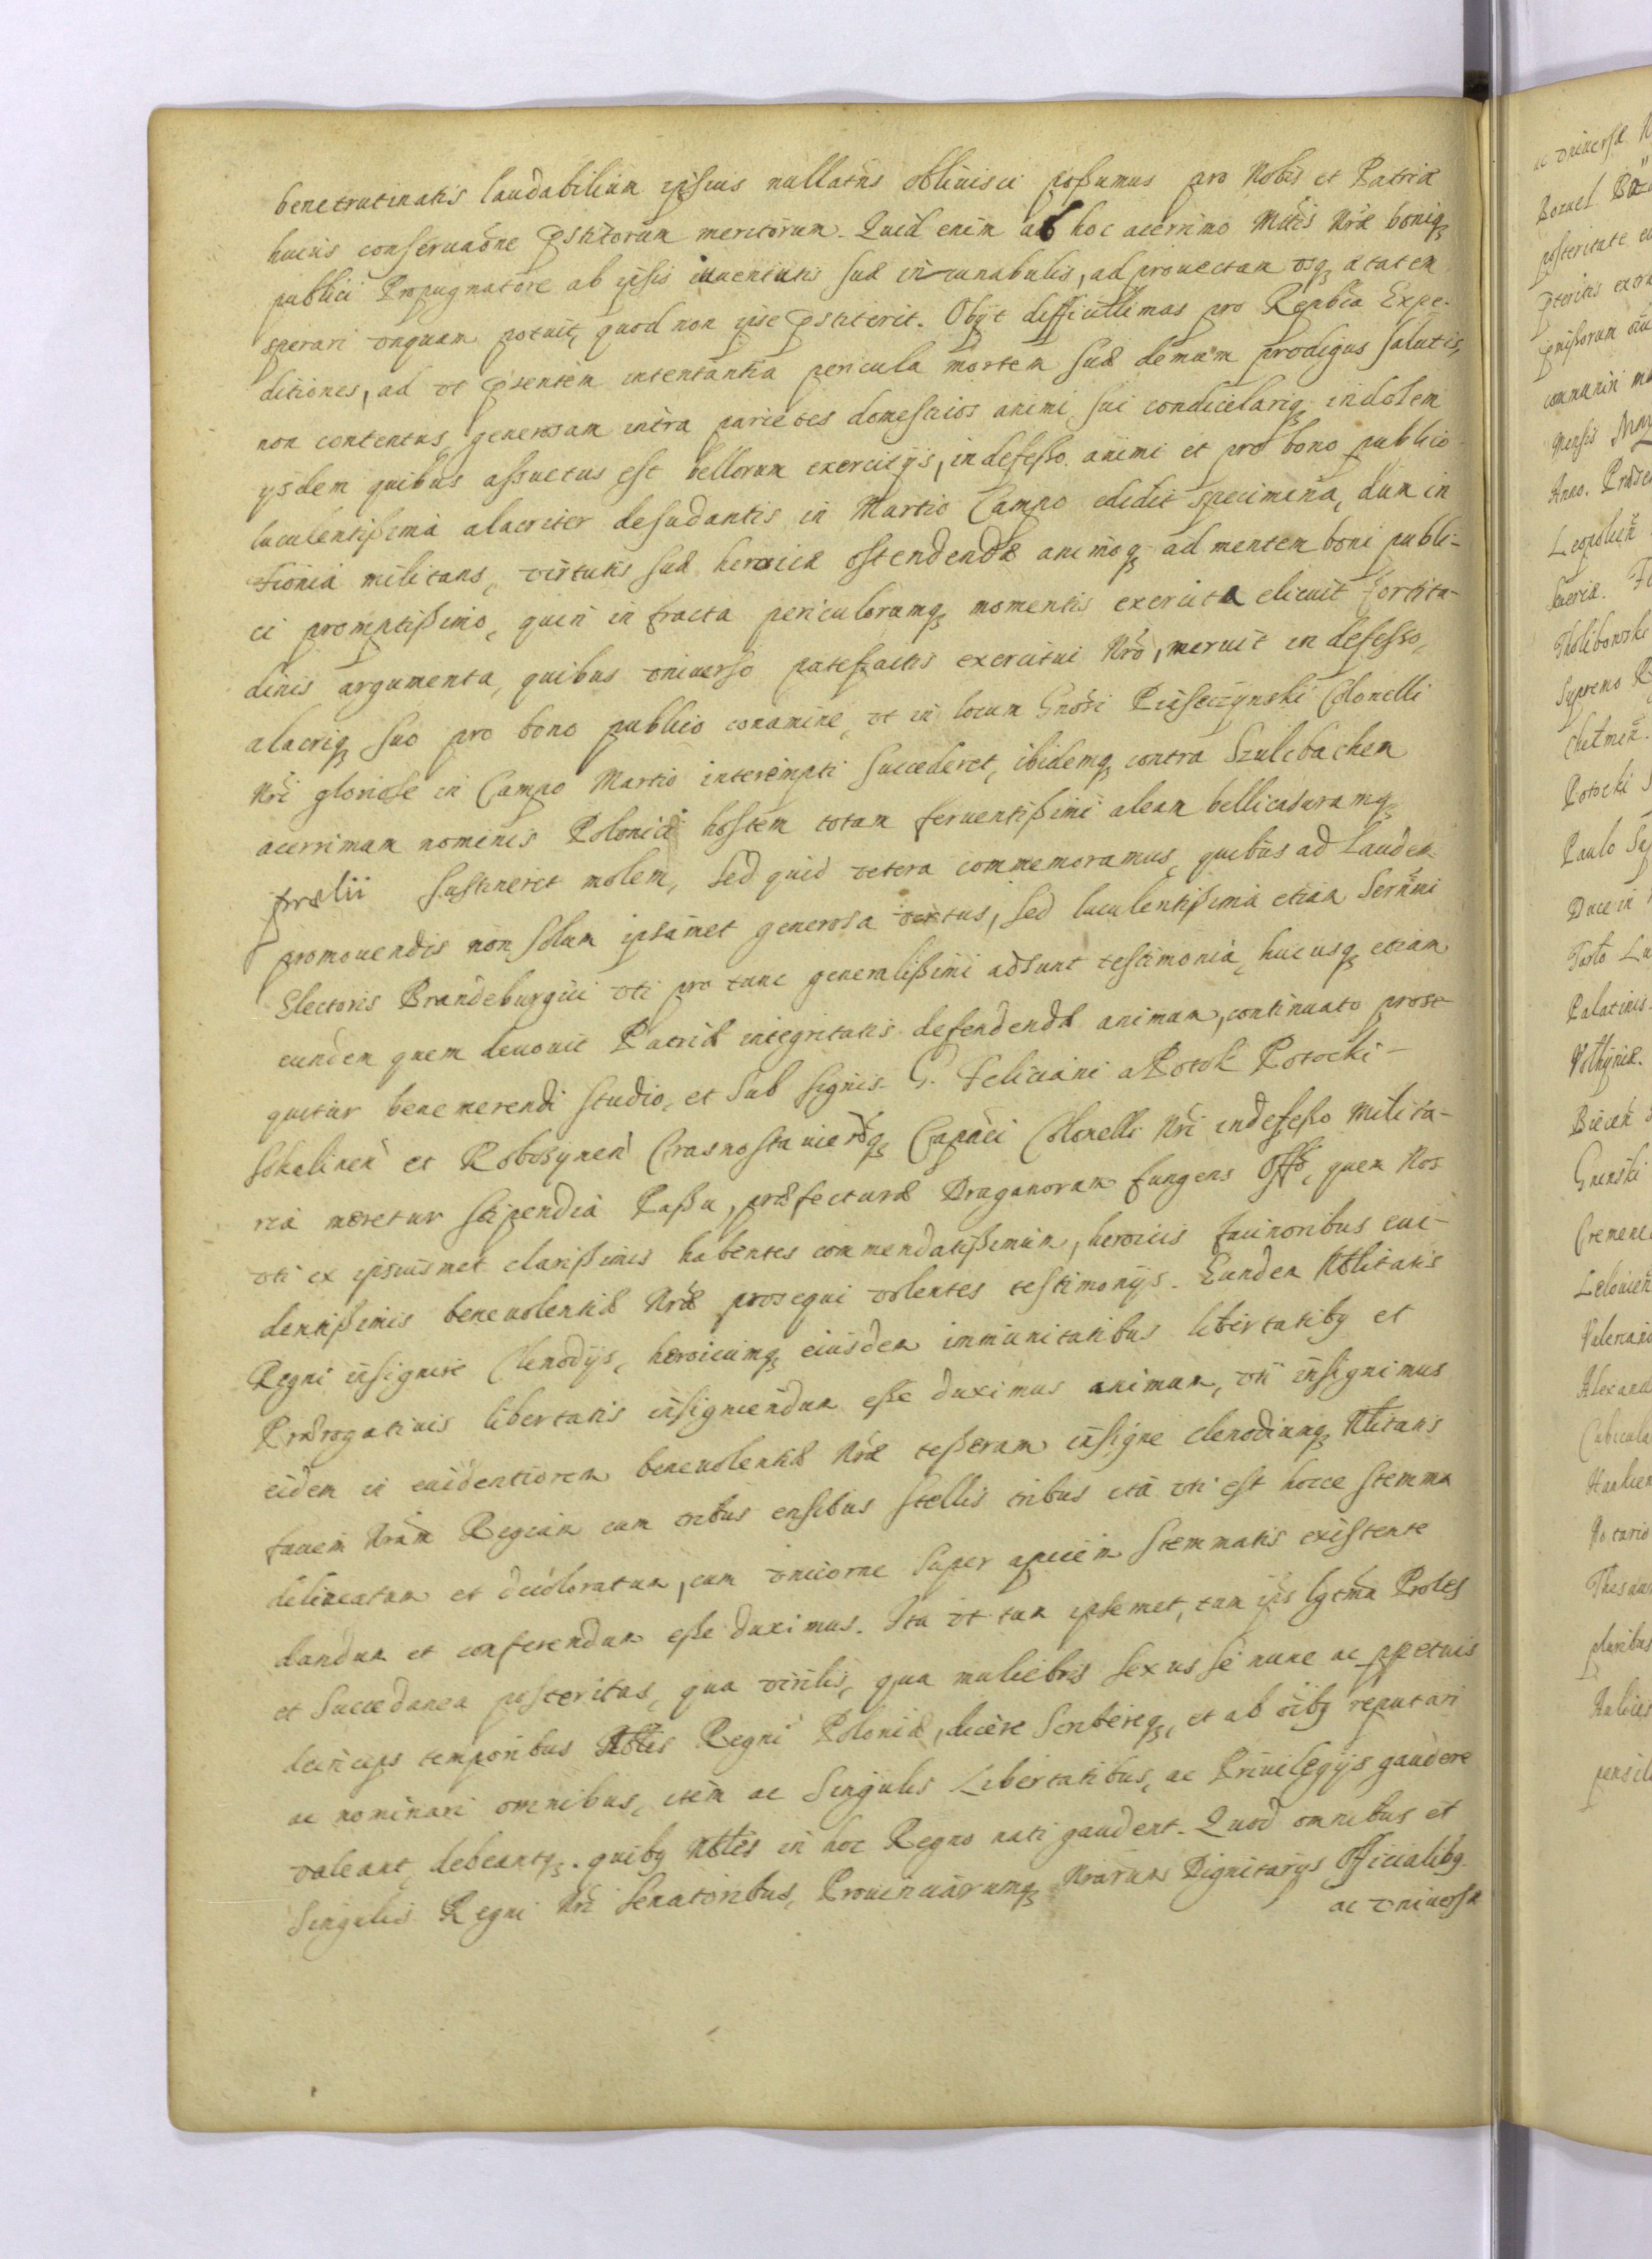 benetrutinatis laudabilium ipsius nullatñs obliuisci poßumus pro Nobis et Patriæ
huius conseruaõne pstitorum meritorum. Quid enim ab hoc acerrimo Mttis Nræ boniq
publici Propugnatore ab ipsis iuuentutis suæ incunabulis, ad prouectam vsq ætatem
sperari vnquam potuit, quod non ipse pstiterit. Obijt difficillimas pro Repblca Expe-
ditiones, ad vt psentem intentantia pericula mortem suæ demum prodigus salutis,
non contentus generosam intra parietes domesticos animi sui condicelariq indolem
ijsdem quibus assuetus est bellorum exercitijs, indefeßo animi et pro bono publico
luculentißima alacriter desudantis in Martio Campo edidit specimena, dum in
militans, virtutis suæ heroicæ ostendendæ animoq ad mentem boni publi-
ci promptißimo, quin infracta periculorumq momentis exercita elicuit fortitu-
dinis argumenta, quibus vniuerso patefactis exercitui Nro, meruit indefesso,
alacriq suo pro bono publico conamine, vt in locum Gnosi Colonelli
Nri gloriose in Campo Martio interempti succederet, ibidemq contra Szulcbachem
acerrimum nominis Polonici hostem totam feruentißimi aleam bellicaturamq
prælii sustineret molem, sed quid vetera commemoramus, quibus ad Laudem
promouendis non solum ipsamet generosa virtus, sed luculentißima etiam Sernmi
Electoris Brandeburgici vti pro tunc generalißimi adsunt testimonia, hucusq etiam
eundem quem deuouit Patriæ integritatis defendendæ animum, continuato prose-
quitur benemerendi studio, et sub signis G. Feliciani a Potok Potocki-
Sokalinen et Robosynen Crasnostauienq Capnei Colonelli Nri indefeßo milita-
ria meretur stipendia Paßu, præfecturæ Draganorum fungens Offo, quem Nos
vti ex ipsiusmet clarißimis habentes commendatißimum, heroicis facinoribus eui-
dentißimis beneuolentiæ Nræ prosequi volentes testimonijs. Eundem Nblitatis
Regni insignire Clenodijs, heroicumq eiusdem immunitatibus libertatibq et
Prærogatiuis libertatis insigniendum eße duximus animum, vti insignimus
eidem in euidentiorem beneuolentiæ Nræ teßeram insigne clenodiumq Nblitatis
Nram Regiam cum tribus ensibus stellis tribus ita vti est hocce stemma
delineatum et decoloratum, cum vnicorne super apicem stemmatis existente
dandum et conferendum eße duximus. Ita vt tam ipsemet, tum ips lgtma Proles
et succedanea posteritas, qua virilis, qua muliebris sexus se nunc ac ppetuis
deinceps temporibus Nbles Regni Poloniæ, dicere scribereq, et ab oibq reputari
ac nominari omnibus, item ac singulis Libertatibus, ac Priuilegijs gaudere
valeant, debeantq. quibq Nbles in hoc Regno nati gaudent. Quod omnibus et
singulis Regni Nri senatoribus, Prouinciarumq Nrarum Dignitarijs Officialibq
ac vniuersæ